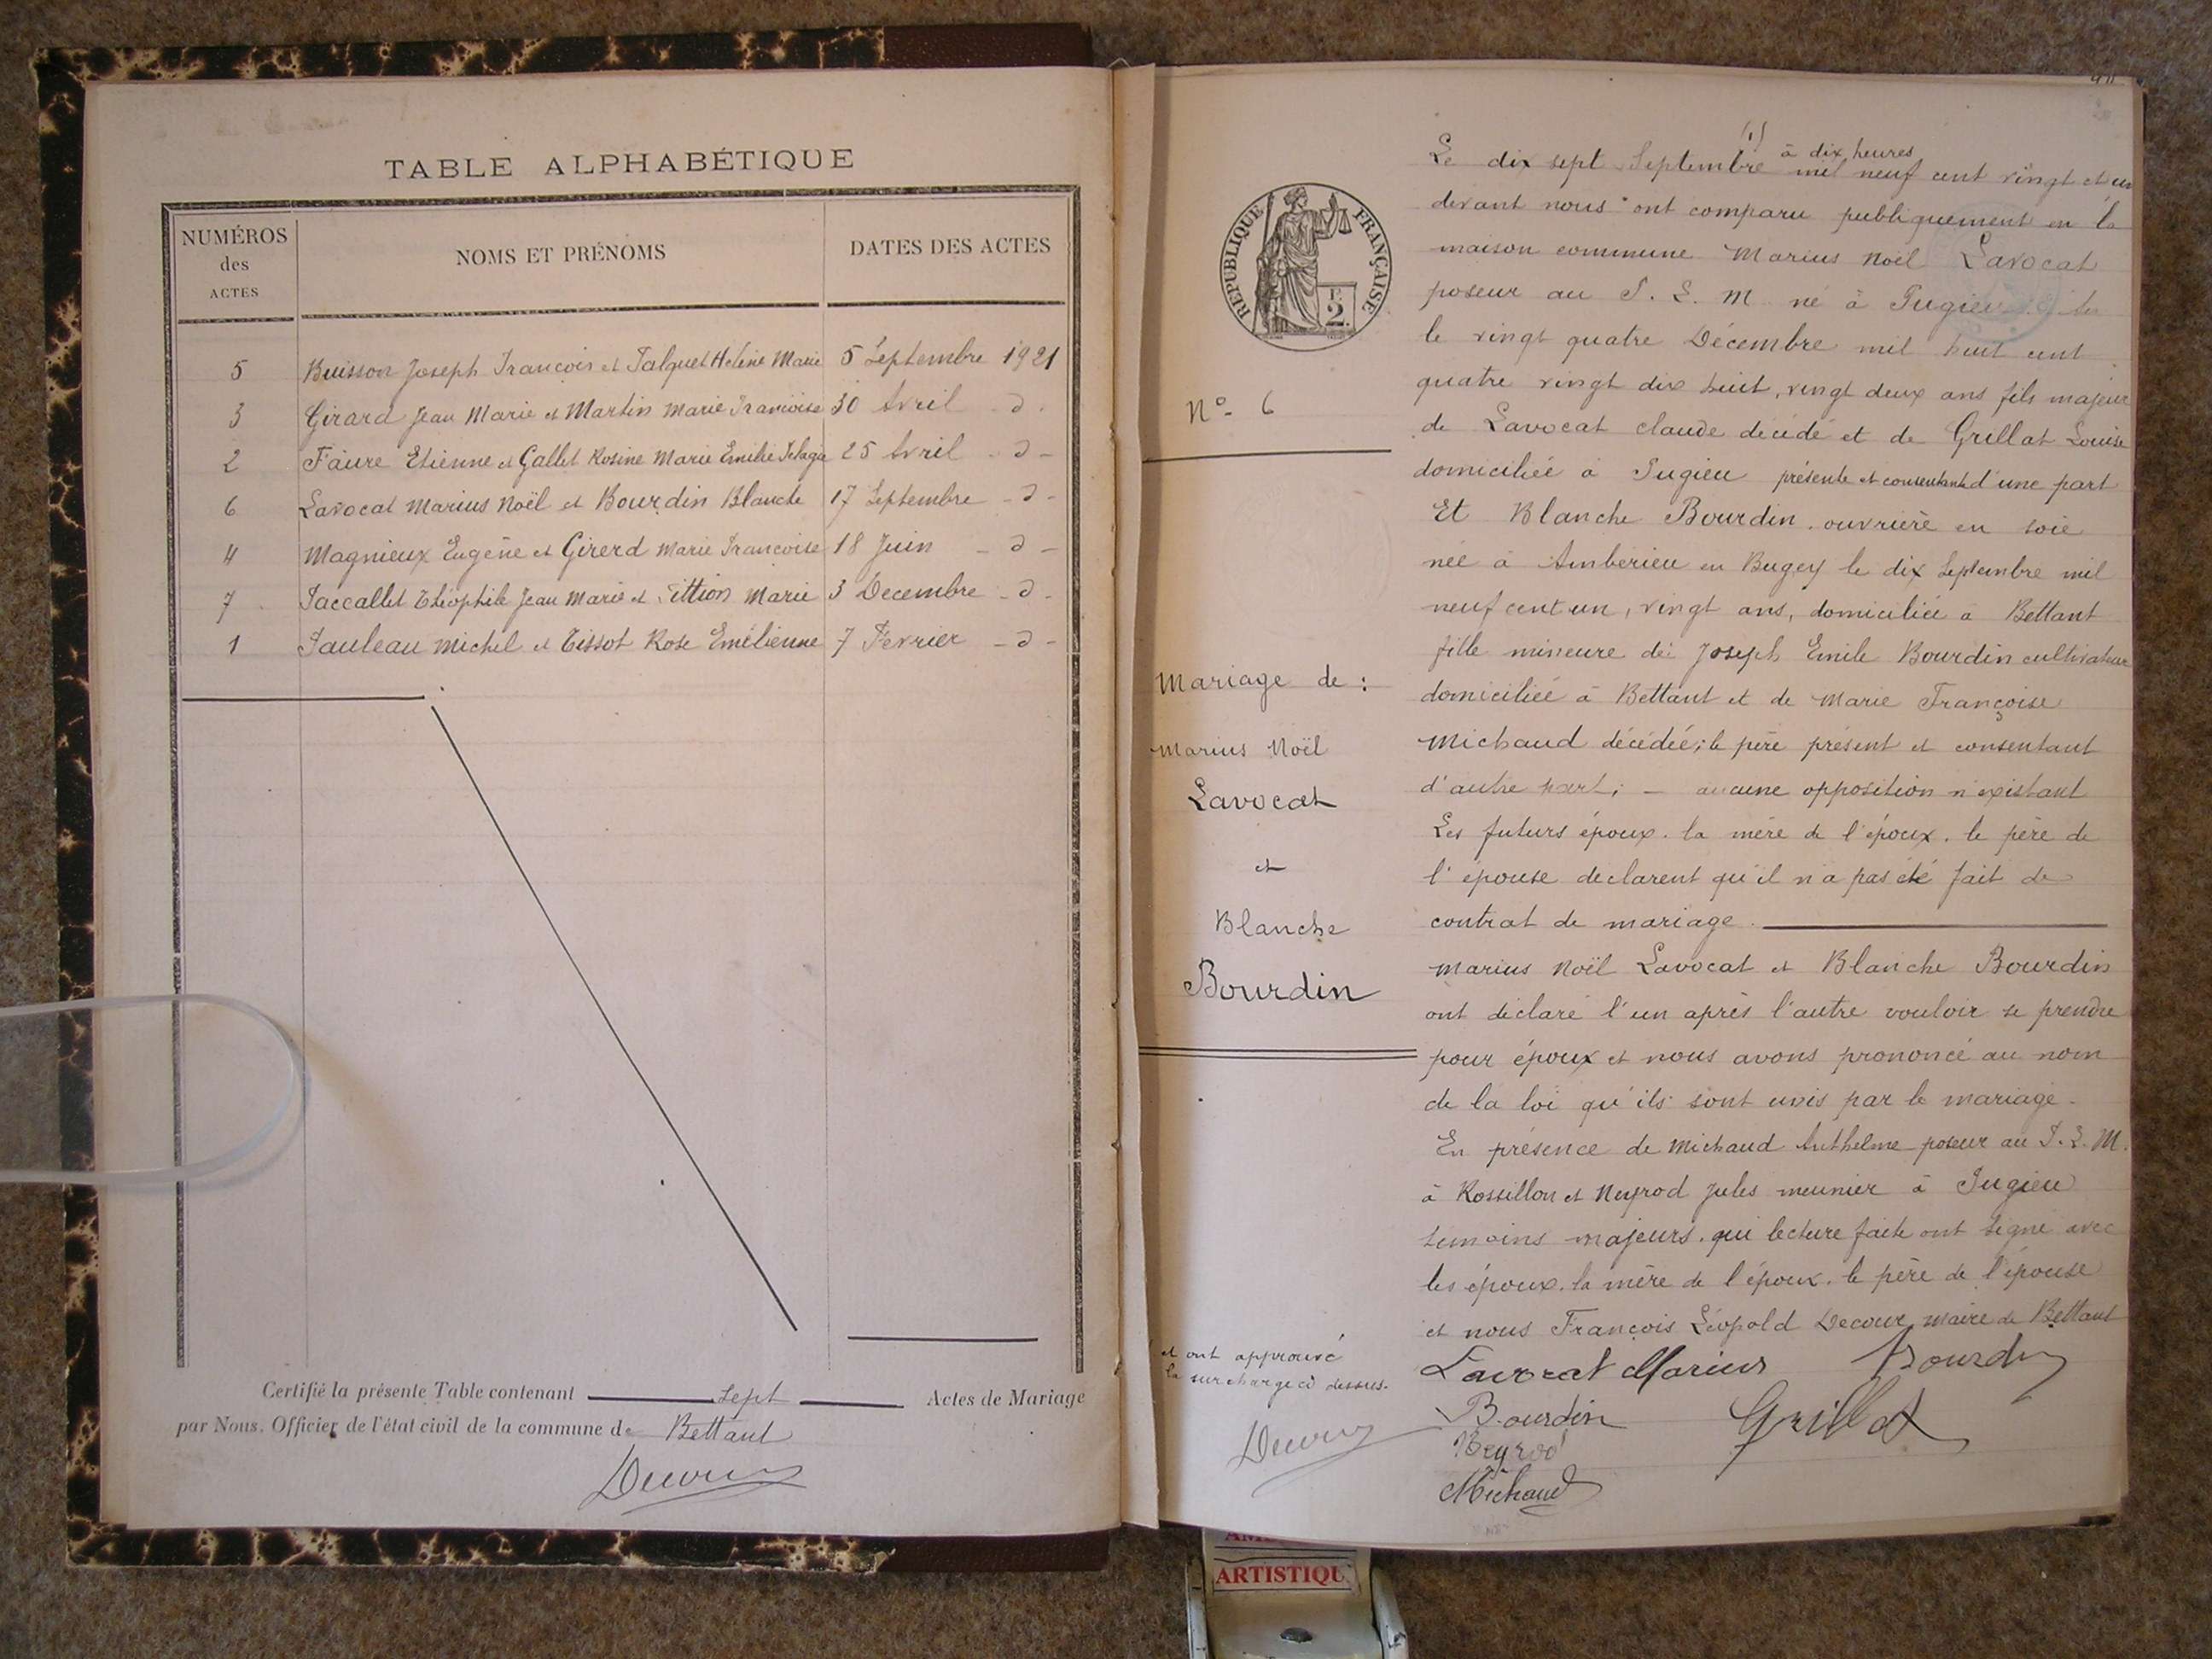 TABLE ALPHABÉTIQUE
NUMÉROS
des
ACTES
NOMS ET PRÉNOMS
DATES DES ACTES
5 Buisson Joseph François et Falquet Hélène Marie 5 Septembre 1921
3 Girard Jean Marie et Martin Marie Françoise 30 Avril - d -
2 Faure Etienne et Gallet Rosine Marie Emilie 25 Avril - d -
6 Lavocat Marius Noël et Bourdin Blanche 17 Septembre - d -
4 Magnieux Eugène et Girerd Marie Françoise 18 Juin - d -
7 Paccallet Théophile Jean Marie et Marie 3 Décembre - d -
1 Pauleau Michel et Tissot Rose Emélienne 7 Février - d -
Certifié la présente Table contenant sept Actes de Mariage
par Nous, Officier de l'état civil de la commune de Bettant
Decour
RÉPUBLIQUE FRANÇAISE
F.
2.
No 6
Mariage de :
Marius Noël
Lavocat
et
Blanche
Bourdin
(1) à dix heures
Le dix sept Septembre mil neuf cent vingt et un
devant nous ont comparu publiquement en la
maison commune Marius Noël Lavocat
poseur au P. L. M né à Pugieu
le vingt quatre Décembre mil huit cent
quatre vingt dix huit, vingt deux ans fils majeur
de Lavocat Claude décédé et de Grillat Louise
domiciliée à Pugieu présente et consentante d'une part
Et Blanche Bourdin. ouvrière en soie
née à Ambérieu en Bugey le dix Septembre mil
neuf cent un, vingt ans, domiciliée à Bettant
fille mineure de Joseph Emile Bourdin cultivateur
domicilié à Bettant et de Marie Françoise
Michaud décédée; le père présent et consentant
d'autre part; - aucune opposition n'existant
Les futurs époux. la mère de l'époux. le père de
l'épouse déclarent qu'il n'a pas été fait de
contrat de mariage.
Marius Noël Lavocat et Blanche Bourdin
ont déclaré l'un après l'autre vouloir se prendre
pour époux et nous avons prononcé au nom
de la loi qu'ils sont unis par le mariage -
En présence de Michaud Anthelme poseur au P. L. M.
à Rossillon et Neyrod Jules meunier à Pugieu
témoins majeurs. qui lecture faite ont signé avec
les époux. la mère de l'époux. le père de l'épouse
et nous François Léopold Decour maire de Bettant
et ont approuvé
la surcharge ci dessus.
Decour
Lavocat Marius Bourdin
Bourdin Grillat
Neyrod
Michaud
ARTISTIQU